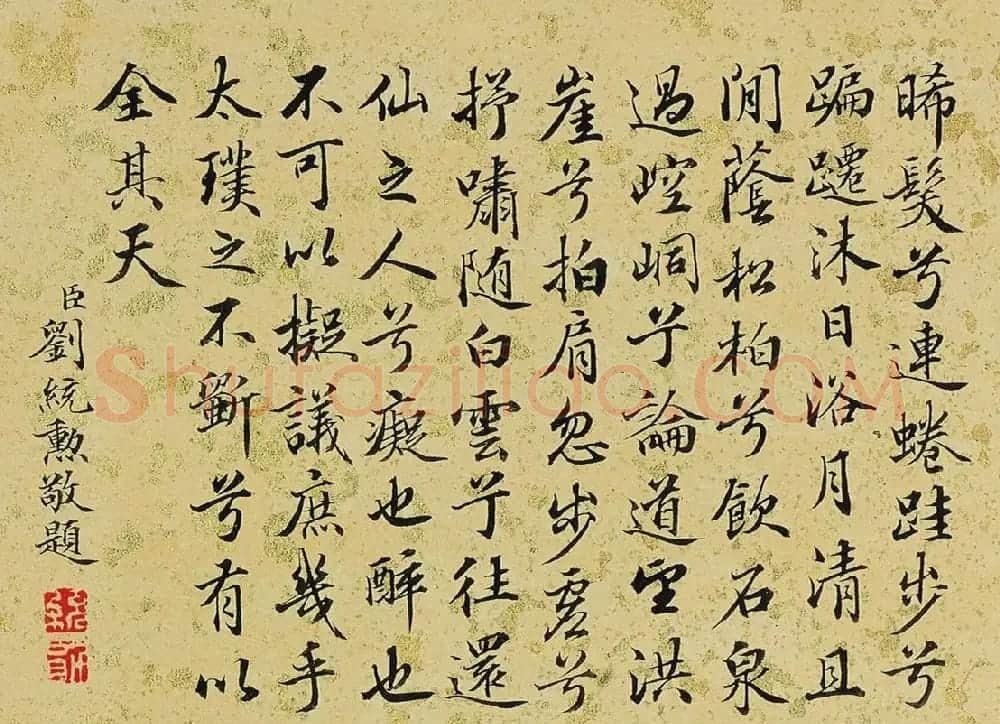 晞髮兮連蜷跬步兮
蹁躚沐日浴月清且
閒蔭松柏兮飲石泉
過崆峒兮論道望洪
崖兮拍肩忽步虛兮
抒嘯随白雲兮往還
仙之人兮癡也醉也
不可以擬議庶幾乎
太璞之不斵兮有以
全其天
臣劉統勲敬題
Shufaziliao.COM